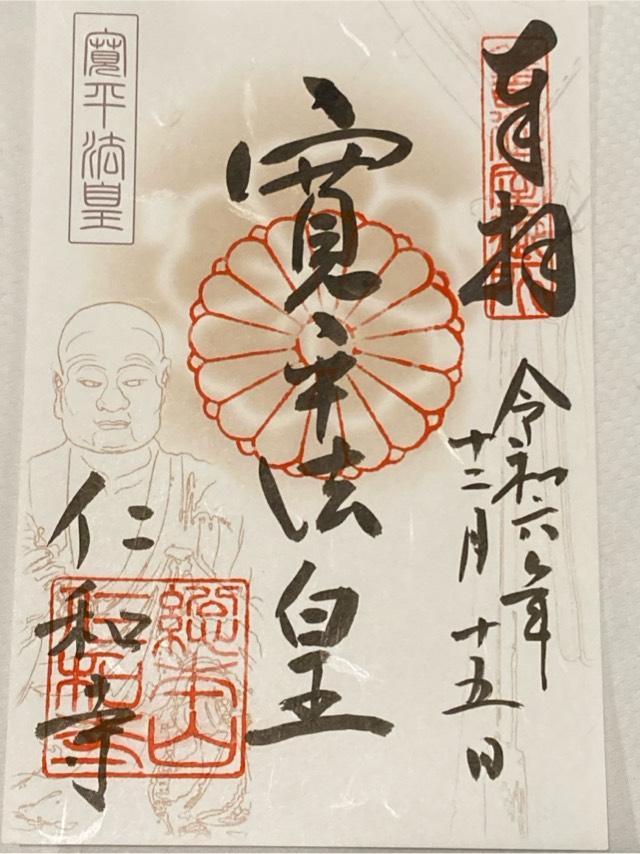 奉拝
令和六年
十二月十五日
寛平法皇
寛平法皇
仁和寺
總本山
仁和寺